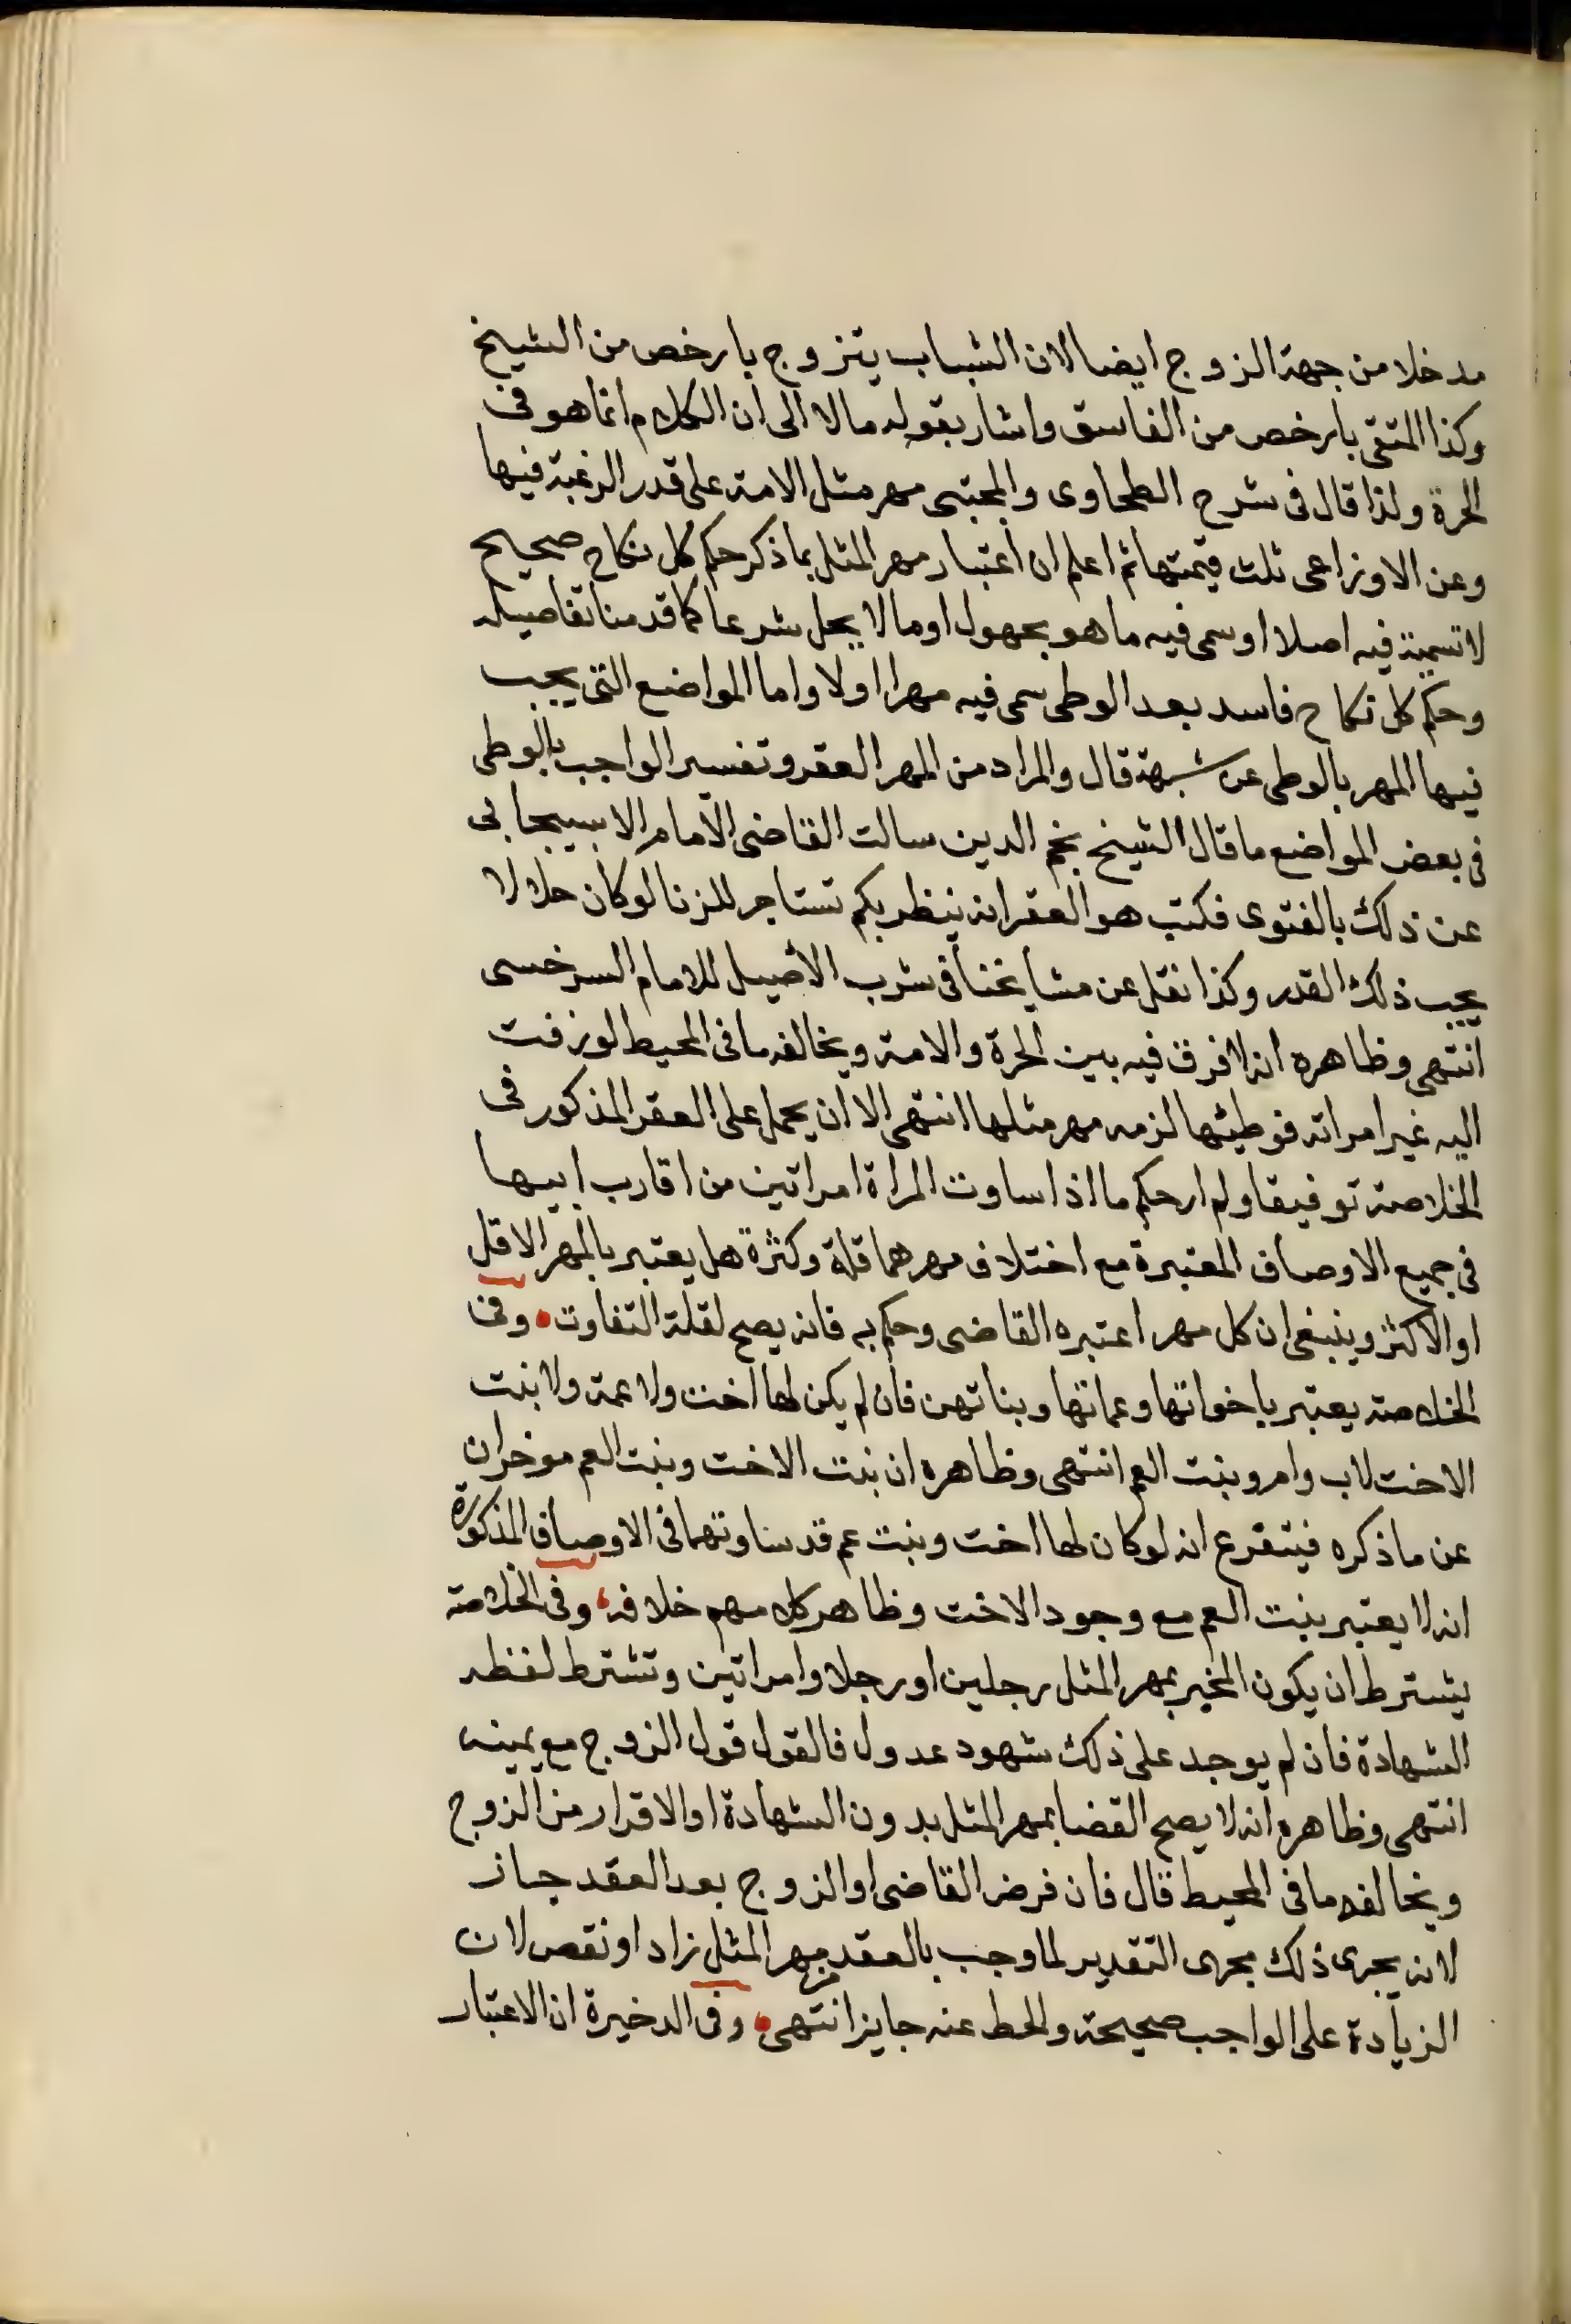 مدخلا من جهة الزوج ايضا لان الشباب يتزوج بارخص من الشيخ
وكذا المتقى بارخص من الفاسق واشار بقوله مالا الى ان الكلام انما هو فى
الحرة ولذا قال فى شرح الطحاوى والمجتبى مهر مثل الامة على قدر الرغبة فيها
وعن الاوزاعى ثلث قيمتها ثم اعلم ان اعتبار مهر المثل بما ذكر حكم كل نكاح صحيح
لا تسمية فيه اصلا او سمى فيه ما هو مجهول او ما لا يحل شرعا كما قدمنا تفاصيله
وحكم كل نكاح فاسد بعد الوطى سمى فيه مهرا اولا واما المواضع التى يجب
فيها المهر بالوطى عن شبهة قال والمراد من المهر العقر وتفسير الواجب بالوطى
فى بعض المواضع ما قال الشيخ نجم الدين سالت القاضى الامام الاسبيجابى
عن ذلك بالفتوى فكتب هو العقر انه ينظر بكم تستاجر للزنا لو كان حلالا
يجب ذلك القدر وكذا نقل عن مشايخنا فى شرب الاصيل للامام السرخسى
انتهى وظاهره انه لا فرق فيه بين الحرة والامة ويخالفه ما فى المحيط لو زفت
اليه غير امراته فوطيئها لزمه مهر مثلها انتهى الا ان يحمل على العقر المذكور فى
الخلاصة توفيقا ولم ار حكم ما اذا ساوت المراة امراتين من اقارب ابيها
فى جميع الاوصاف المعتبرة مع اختلاف مهرهما قلة وكثرة هل يعتبر بالمهر الاقل
او الاكثر وينبغى ان كل مهر اعتبره القاضى وحكم به فانه يصح لقلة التفاوت وفى
الخلاصة يعتبر باخواتها وعماتها وبناتهن فان لم يكن لها اخت ولا عمة ولا بنت
الاخت لاب وام وبنت العم انتهى وظاهره ان بنت الاخت وبنت العم موخران
عن ما ذكره فيتفرع انه لو كان لها اخت وبنت عم قد ساوتهما فى الاوصاف المذكورة
انه لا يعتبر بنت العم مع وجود الاخت وظاهر كلامهم خلافه وفى الخلاصة
يشترط ان يكون المخبر بمهر المثل رجلين او رجلا وامراتين وتشترط لفظه
الشهادة فان لم يوجد على ذلك شهود عدول فالقول قول الزوج مع يمينه
انتهى وظاهره انه لا يصح القضا بمهر المثل بدون الشهادة او الاقرار من الزوج
ويخالفه ما فى المحيط قال فان فرض القاضى او الزوج بعد العقد جاز
لانه يجرى ذلك مجرى التقدير لما وجب بالعقد من مهر المثل زاد او نقص لان
الزيادة على الواجب صحيحة والحط عنه جايز انتهى وفى الدخيرة ان الاعتبار